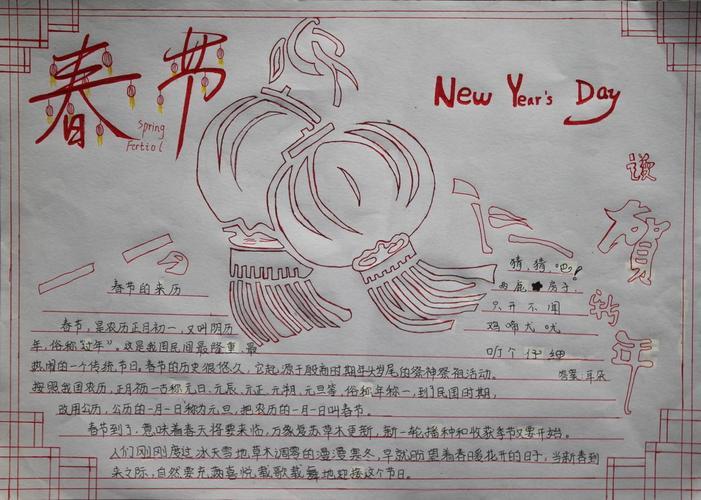 春节
Spring
Fertiol
New Year's Day
谩
贺
新
年
春节的来历
春节,是农历正月初一,又叫阴历
年,俗称"过年"。这是我国民间最隆重、最
热闹的一个传统节日。春节的历史很悠久,它起源于殷商时期年头岁尾的祭神祭祖活动。
按照我国农历,正月初一古称元日、元辰、元正、元朔、元旦等,俗称年初一,到了民国时期,
改用公历,公历的一月一日称为元旦,把农历的一月一日叫春节。
春节到了,意味着春天将要来临,万象复苏草木更新,新一轮播种和收获季节又要开始。
人们刚刚度过冰天雪地草木凋零的漫漫寒冬,早就盼望着春暖花开的日子,当新春到
来之际,自然要充满喜悦载歌载舞地迎接这个节日。
猜,猜,吧!
两扇 房子
只开不闻
鸡啼犬吠
听个仔细
答案:耳朵